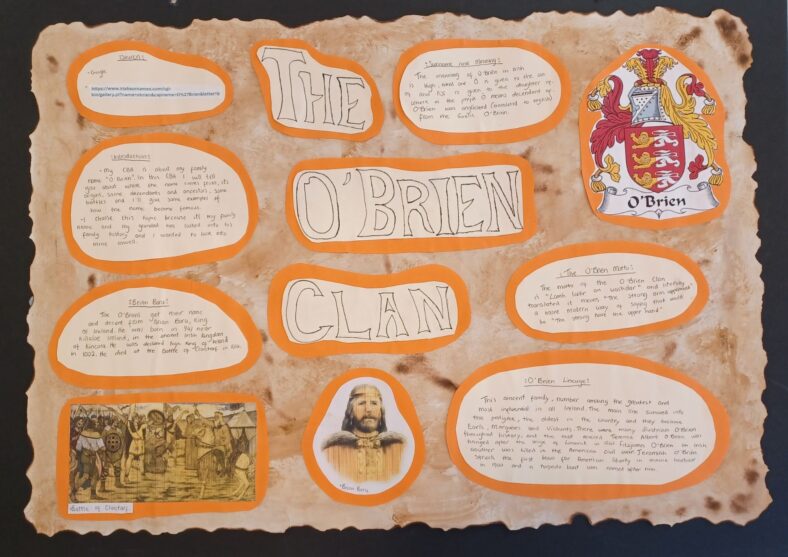 THE
O'BRIEN
CLAN
Sources:
- Google
https://www.
Surname and Meaning:
The meaning of O'Brien in Irish
is high, noble one. O is given to the son
of and NS is given to the daughter re-
where as the prefix O means descendant of.
O'Brien was anglicised (translated to english)
from the Gaelic O'Brien.
O'Brien
Introduction:
- My CBA is about my family
name "O'Brien". In this CBA I will tell
you about where the name comes from, its
origin, some descendants and ancestors, some
battles and I'll give some examples of
how the name became famous.
- I choose this topic because it's my family
name and my grandad has looked into his
family history and I wanted to look into
mine aswell.
:The O'Brien Motto:
The motto of the O'Brien Clan
is "Lamh laidir an uachdar" and literally
translated it means "The strong arm uppermost"
a more modern way of saying that would
be "The strong have the upper hand"
:Brian Boru:
The O'Briens get their name
and descent from "Brian Boru, King
of Ireland. He was born in 941 near
Killaloe Ireland, in the ancient Irish Kingdom
of Kincora. He was declared high King of Ireland
in 1002. He died at the Battle of Clontarf in 1014.
:O'Brien Lineage:
This ancient family, number among the greatest and
most influenced in all Ireland. The main line survived into
the pedigree, the oldest in the country and they became
Earls, Marquess and Viscounts. There were many
throughout history, and the most ancient Terence Albert O'Brien was
hanged after the siege of Limerick in 1651. Fitzjames O'Brien an Irish
author was killed in the American Civil war. Jeremiah O'Brien
struck the first blow for American liberty in Maine harbour
in and a torpedo boat was named after him.
Battle of Clontarf.
*Brian Boru